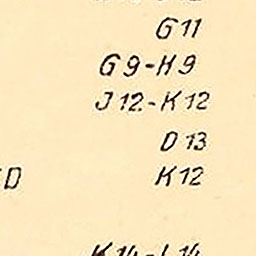 G11
G9-H9
J12-K12
D13
D K12
K14-L14